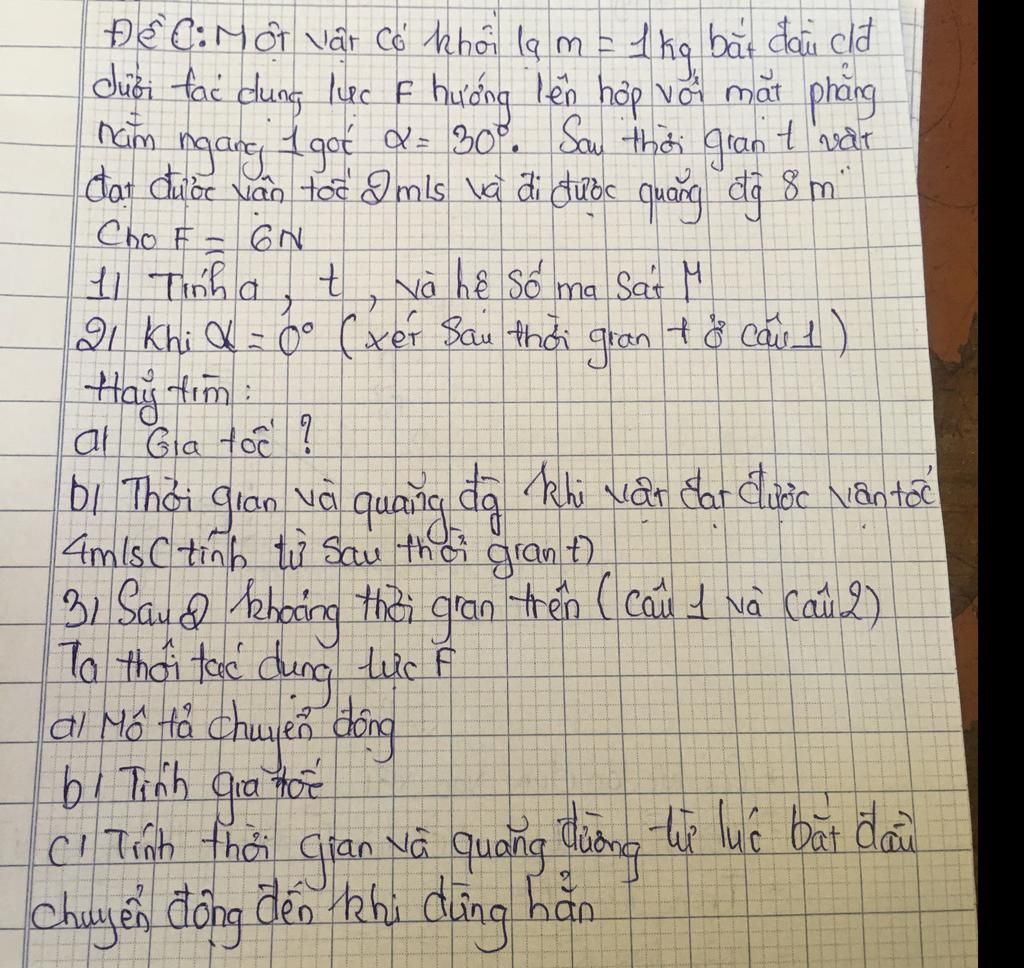 Đề C: Một vật có khối lg m = 1kg bắt đầu cđ
dưới tác dụng lực F hướng lên hợp với mặt phẳng
nằm ngang 1 góc α = 30°. Sau thời gian t vật
đạt được vận tốc 2m/s và đi được quãng đg 8m
Cho F = 6N
1/ Tính a, t, và hệ số ma sát μ
2/ Khi α = 0° (xét sau thời gian t ở câu 1)
Hãy tìm:
a/ Gia tốc ?
b/ Thời gian và quãng đg khi vật đạt được vận tốc
4m/s (tính từ sau thời gian t)
3/ Sau 2 khoảng thời gian trên (câu 1 và câu 2)
Ta thôi tác dụng lực F
a/ Mô tả chuyển động
b/ Tính gia tốc
c/ Tính thời gian và quãng đường từ lúc bắt đầu
chuyển động đến khi dừng hẳn